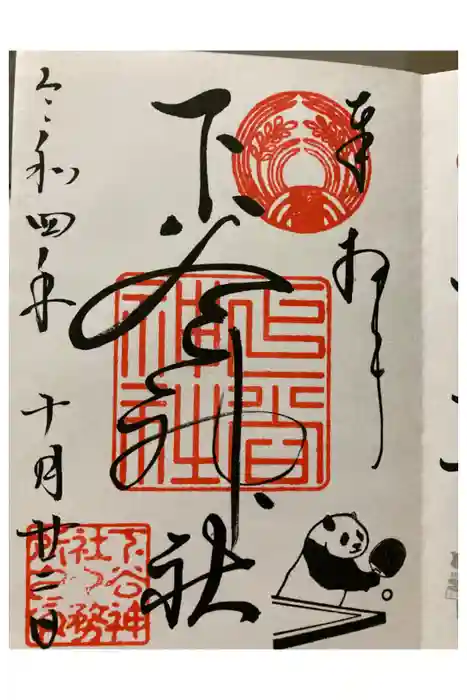 奉拝
下谷神社
下谷
神社
令和四年 十月廿二日
下谷神